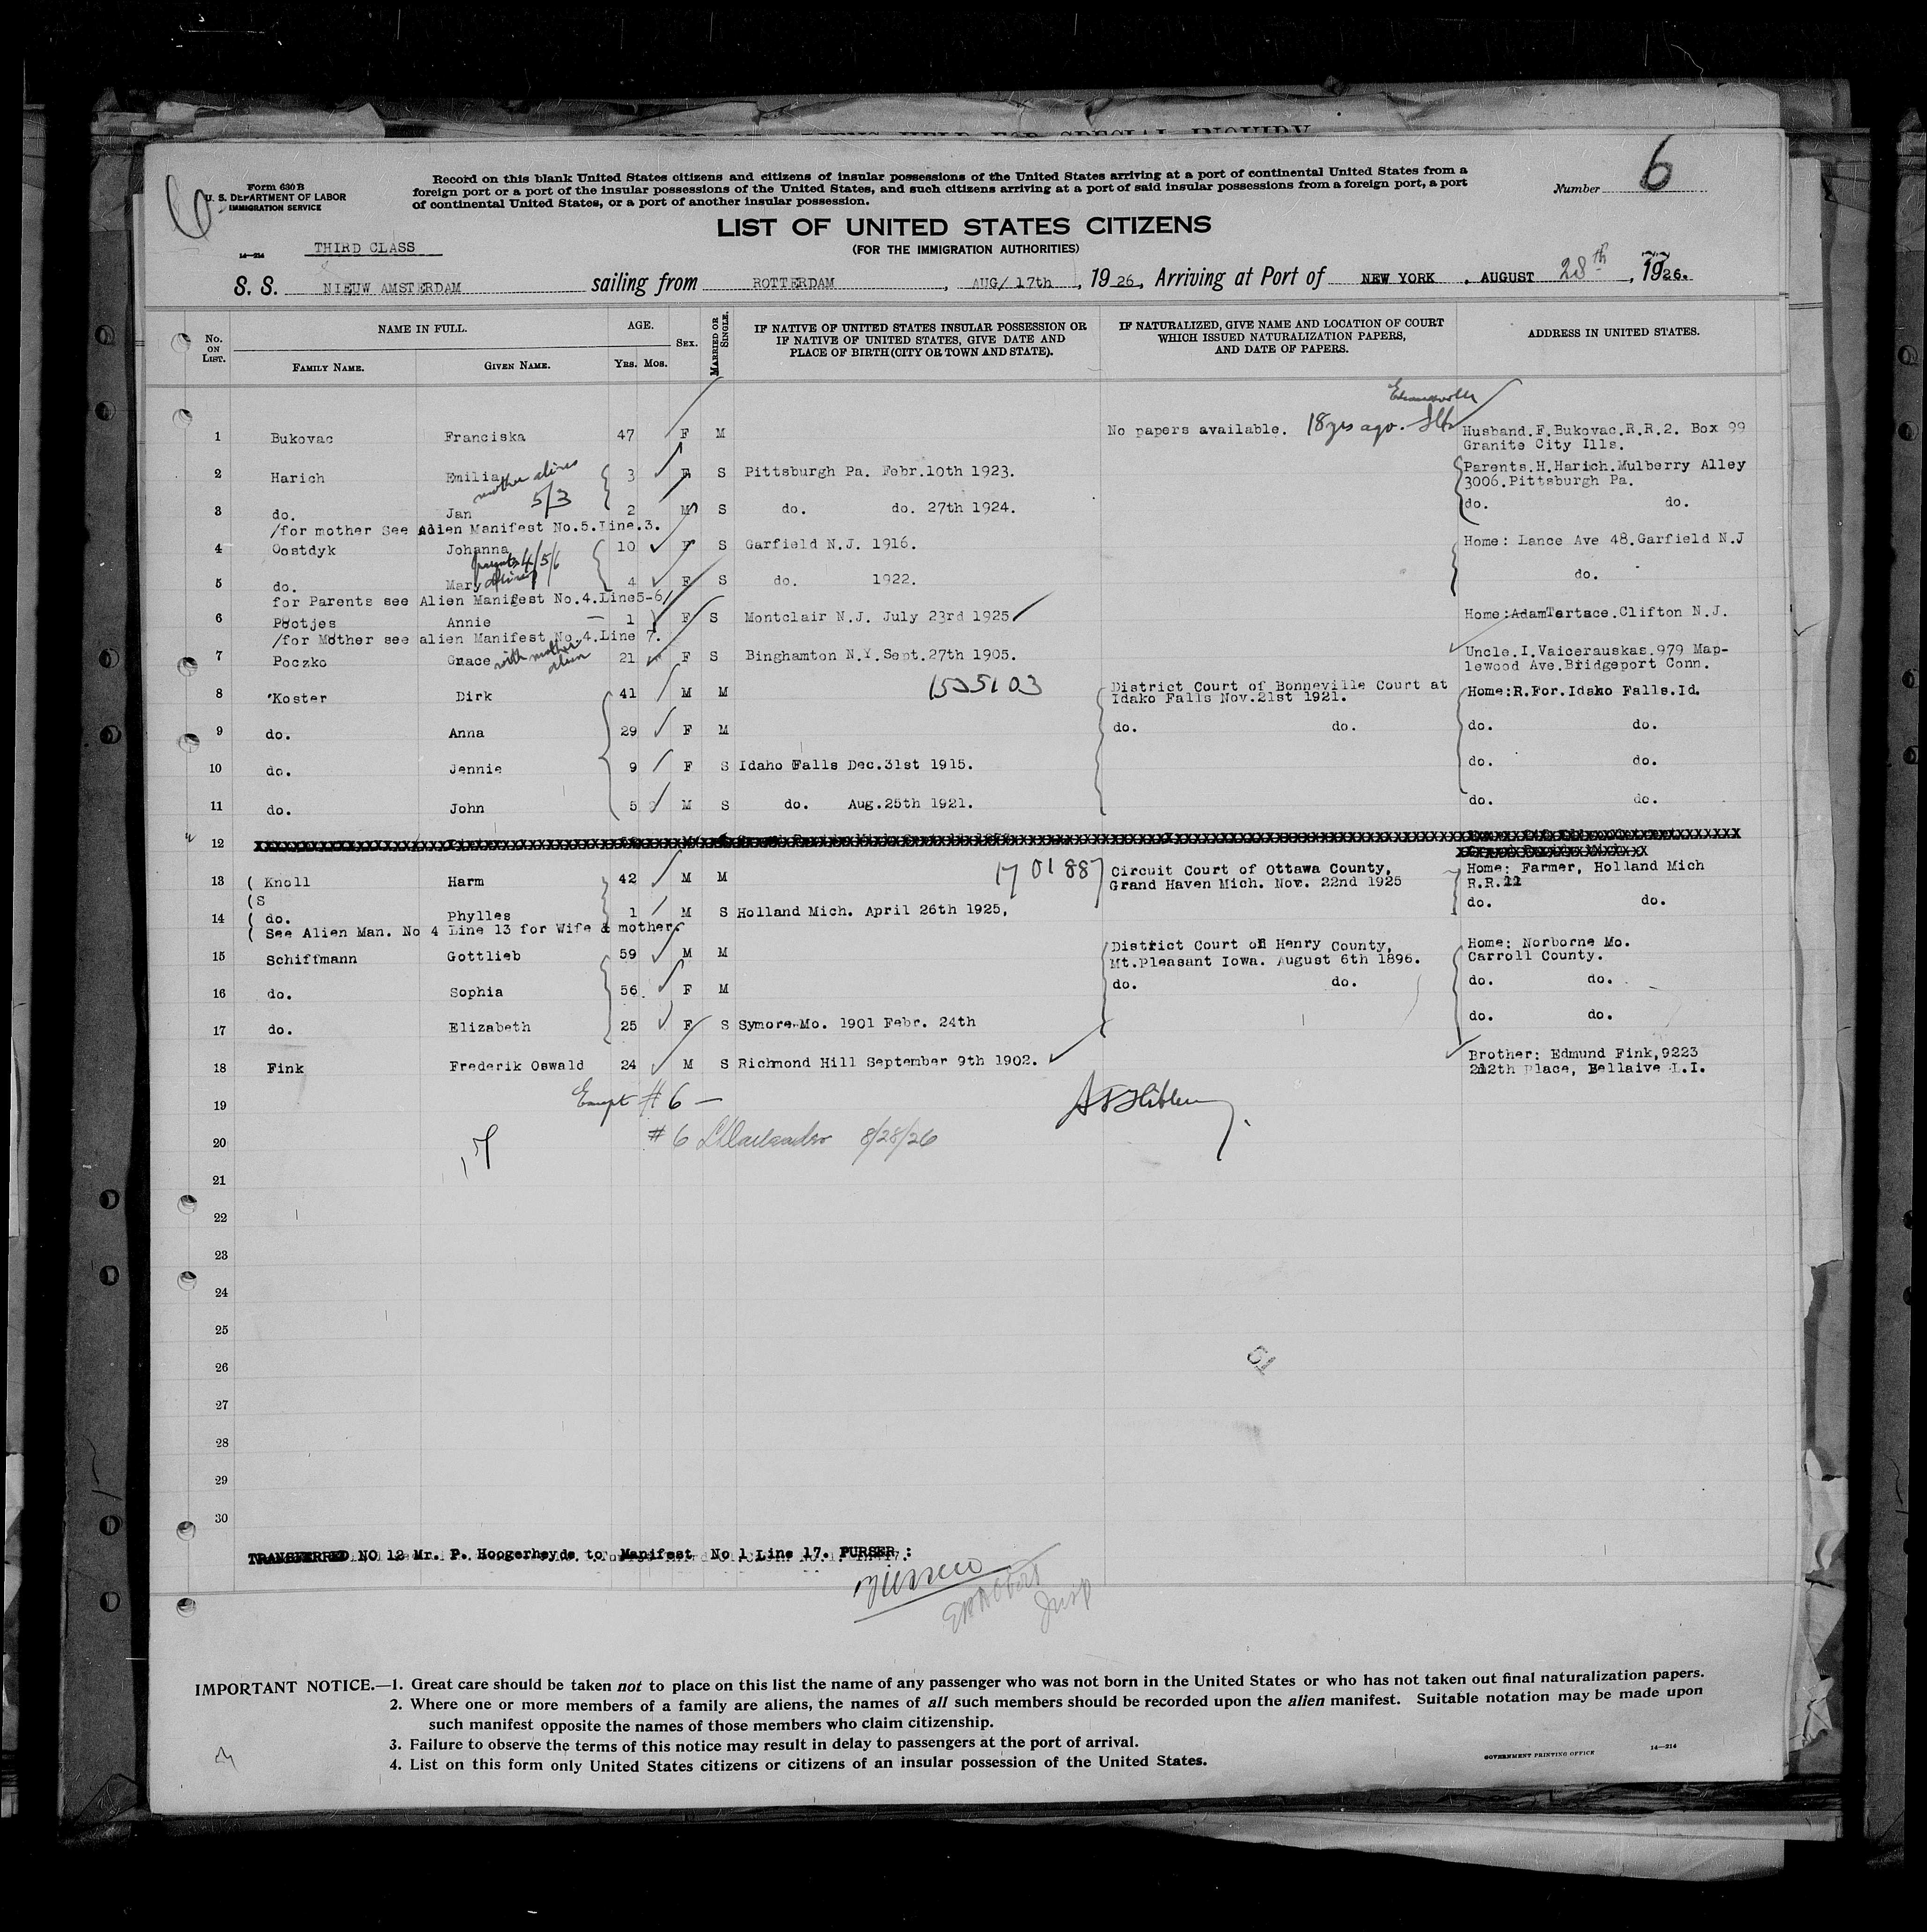 RECORD OF ALIENS HELD FOR SPECIAL INQUIRY
6
Form 630 B
U. S. DEPARTMENT OF LABOR
IMMIGRATION SERVICE
Record on this blank United States citizens and citizens of insular possessions of the United States arriving at a port of continental United States from a
foreign port or a port of the insular possessions of the United States, and such citizens arriving at a port of said insular possessions from a foreign port, a port
of continental United States, or a port of another insular possession.
Number 6
LIST OF UNITED STATES CITIZENS
(FOR THE IMMIGRATION AUTHORITIES)
14—214
THIRD CLASS
S. S. NIEUW AMSTERDAM sailing from ROTTERDAM, AUG/ 17th, 1926, Arriving at Port of NEW YORK, AUGUST 28th, 1926.
No. ON LIST.
NAME IN FULL.
FAMILY NAME. GIVEN NAME.
AGE.
YRS. MOS.
SEX.
MARRIED OR SINGLE.
IF NATIVE OF UNITED STATES INSULAR POSSESSION OR
IF NATIVE OF UNITED STATES, GIVE DATE AND
PLACE OF BIRTH (CITY OR TOWN AND STATE).
IF NATURALIZED, GIVE NAME AND LOCATION OF COURT
WHICH ISSUED NATURALIZATION PAPERS,
AND DATE OF PAPERS.
ADDRESS IN UNITED STATES.
Edwardsville
1 Bukovac Franciska 47 F M No papers available. 18 yrs ago. Ills Husband.F.Bukovac.R.R.2. Box 99
Granite City Ills.
2 Harich Emilia 3 F S Pittsburgh Pa. Febr.10th 1923. Parents.H.Harich.Mulberry Alley
3006.Pittsburgh Pa.
mother alien
5/3
3 do. Jan 2 M S do. do. 27th 1924. do. do.
/for mother See Alien Manifest No.5.Line.3.
4 Oostdyk Johanna 10 F S Garfield N.J. 1916. Home: Lance Ave 48.Garfield N.J
parents 4/5/6
aliens
5 do. Mary 4 F S do. 1922. do.
for Parents see Alien Manifest No.4.Line5-6/
6 Pootjes Annie — 1 F S Montclair N.J. July 23rd 1925 Home:AdamTertace.Clifton N.J.
/for Mother see alien Manifest No.4.Line 7.
7 Poczko Grace with mother alien 21 F S Binghamton N.Y.Sept.27th 1905. Uncle.I.Vaicerauskas.979 Map-
lewood Ave.Bridgeport Conn.
1535103
8 Koster Dirk 41 M M District Court of Bonneville Court at
Idako Falls Nov.21st 1921. Home:R.For.Idaho Falls.Id.
9 do. Anna 29 F M do. do. do. do.
10 do. Jennie 9 F S Idaho Falls Dec.31st 1915. do. do.
11 do. John 5 M S do. Aug.25th 1921. do. do.
12
1701887
13 ( Knoll Harm 42 M M Circuit Court of Ottawa County,
Grand Haven Mich. Nov. 22nd 1925 Home: Farmer, Holland Mich
R.R.11
(S
14 ( do. Phylles 1 M S Holland Mich. April 26th 1925, do. do.
( See Alien Man. No 4 Line 13 for Wife & mother.
15 Schiffmann Gottlieb 59 M M District Court of Henry County,
Mt.Pleasant Iowa. August 6th 1896. Home: Norborne Mo.
Carroll County.
16 do. Sophia 56 F M do. do. do. do.
17 do. Elizabeth 25 F S Symore Mo. 1901 Febr. 24th do. do.
18 Fink Frederik Oswald 24 M S Richmond Hill September 9th 1902. Brother: Edmund Fink,9223
212th Place, Bellaive L.I.
19 Except # 6 —
20 # 6 8/28/26
21
22
23
24
25
26
27
28
29
30
61
TRANSFERRED NO 12 Mr. P. Hoogerheyde to Manifest No 1 Line 17. PURSER :
Insp
IMPORTANT NOTICE.—1. Great care should be taken not to place on this list the name of any passenger who was not born in the United States or who has not taken out final naturalization papers.
2. Where one or more members of a family are aliens, the names of all such members should be recorded upon the alien manifest. Suitable notation may be made upon
such manifest opposite the names of those members who claim citizenship.
3. Failure to observe the terms of this notice may result in delay to passengers at the port of arrival.
4. List on this form only United States citizens or citizens of an insular possession of the United States.
GOVERNMENT PRINTING OFFICE
14—214